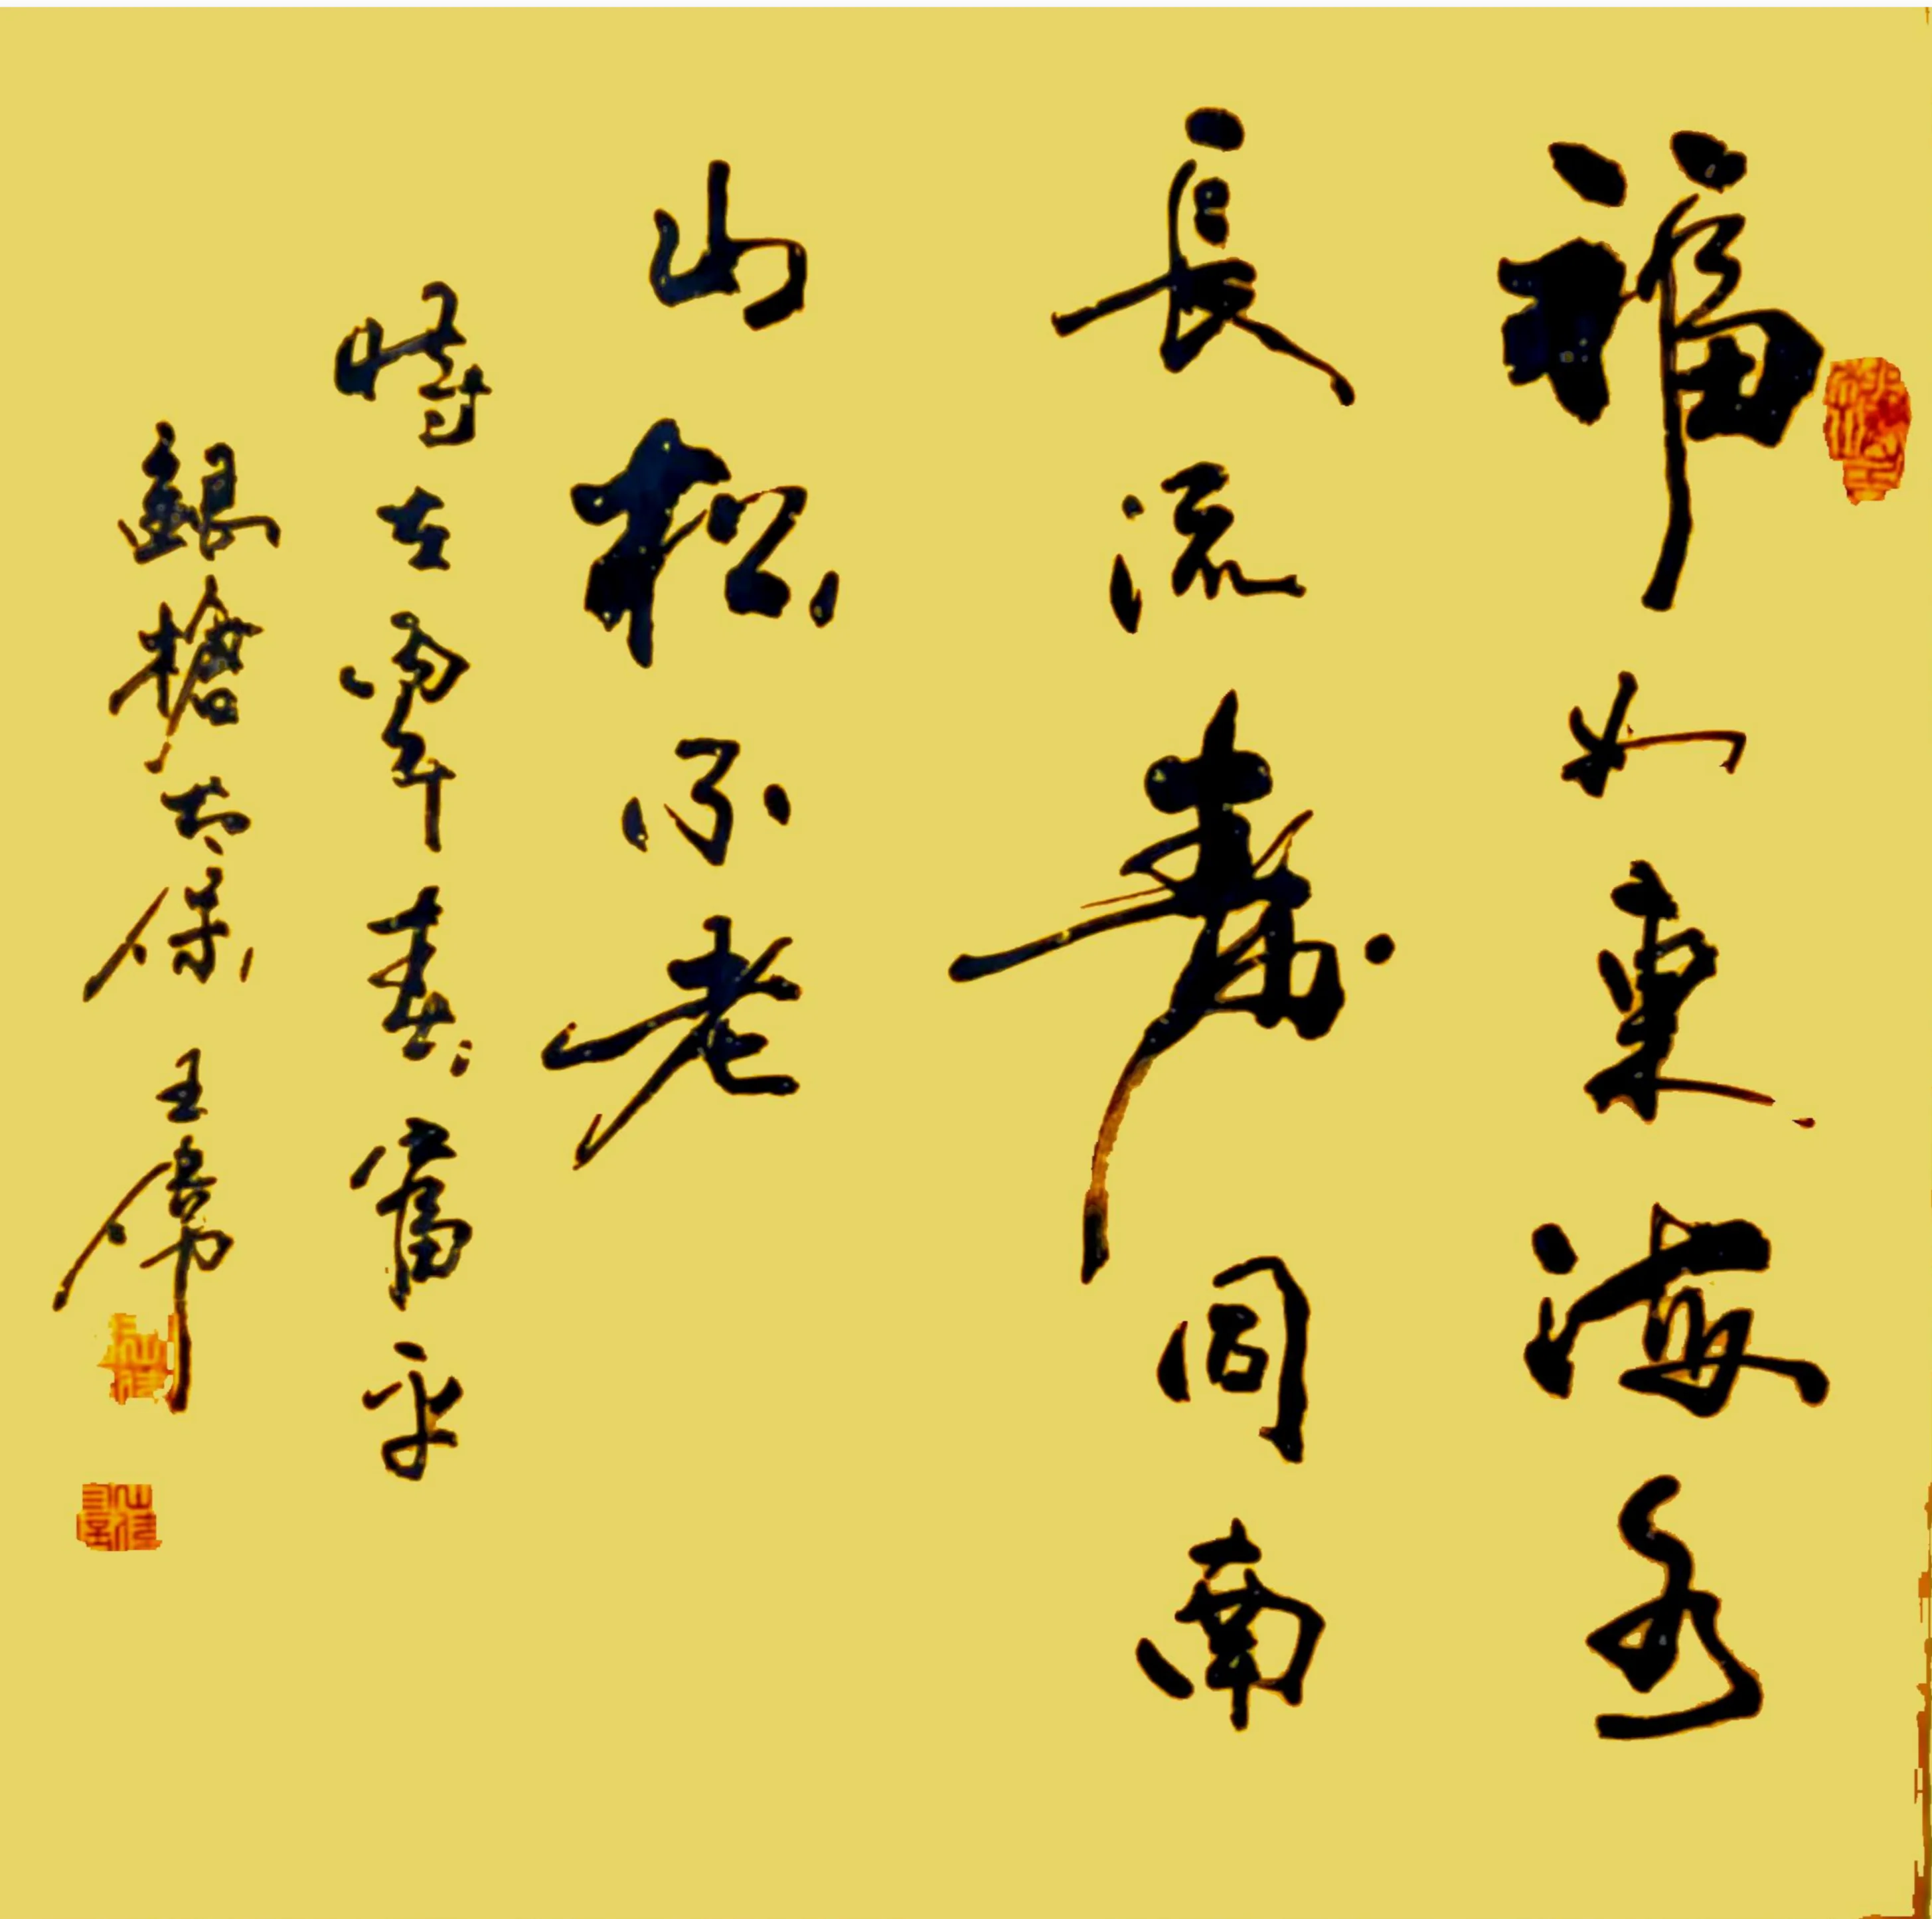 福如東海水
長流壽同南
山松不老
時在丙申年春 富平
銀槍太保 王偉